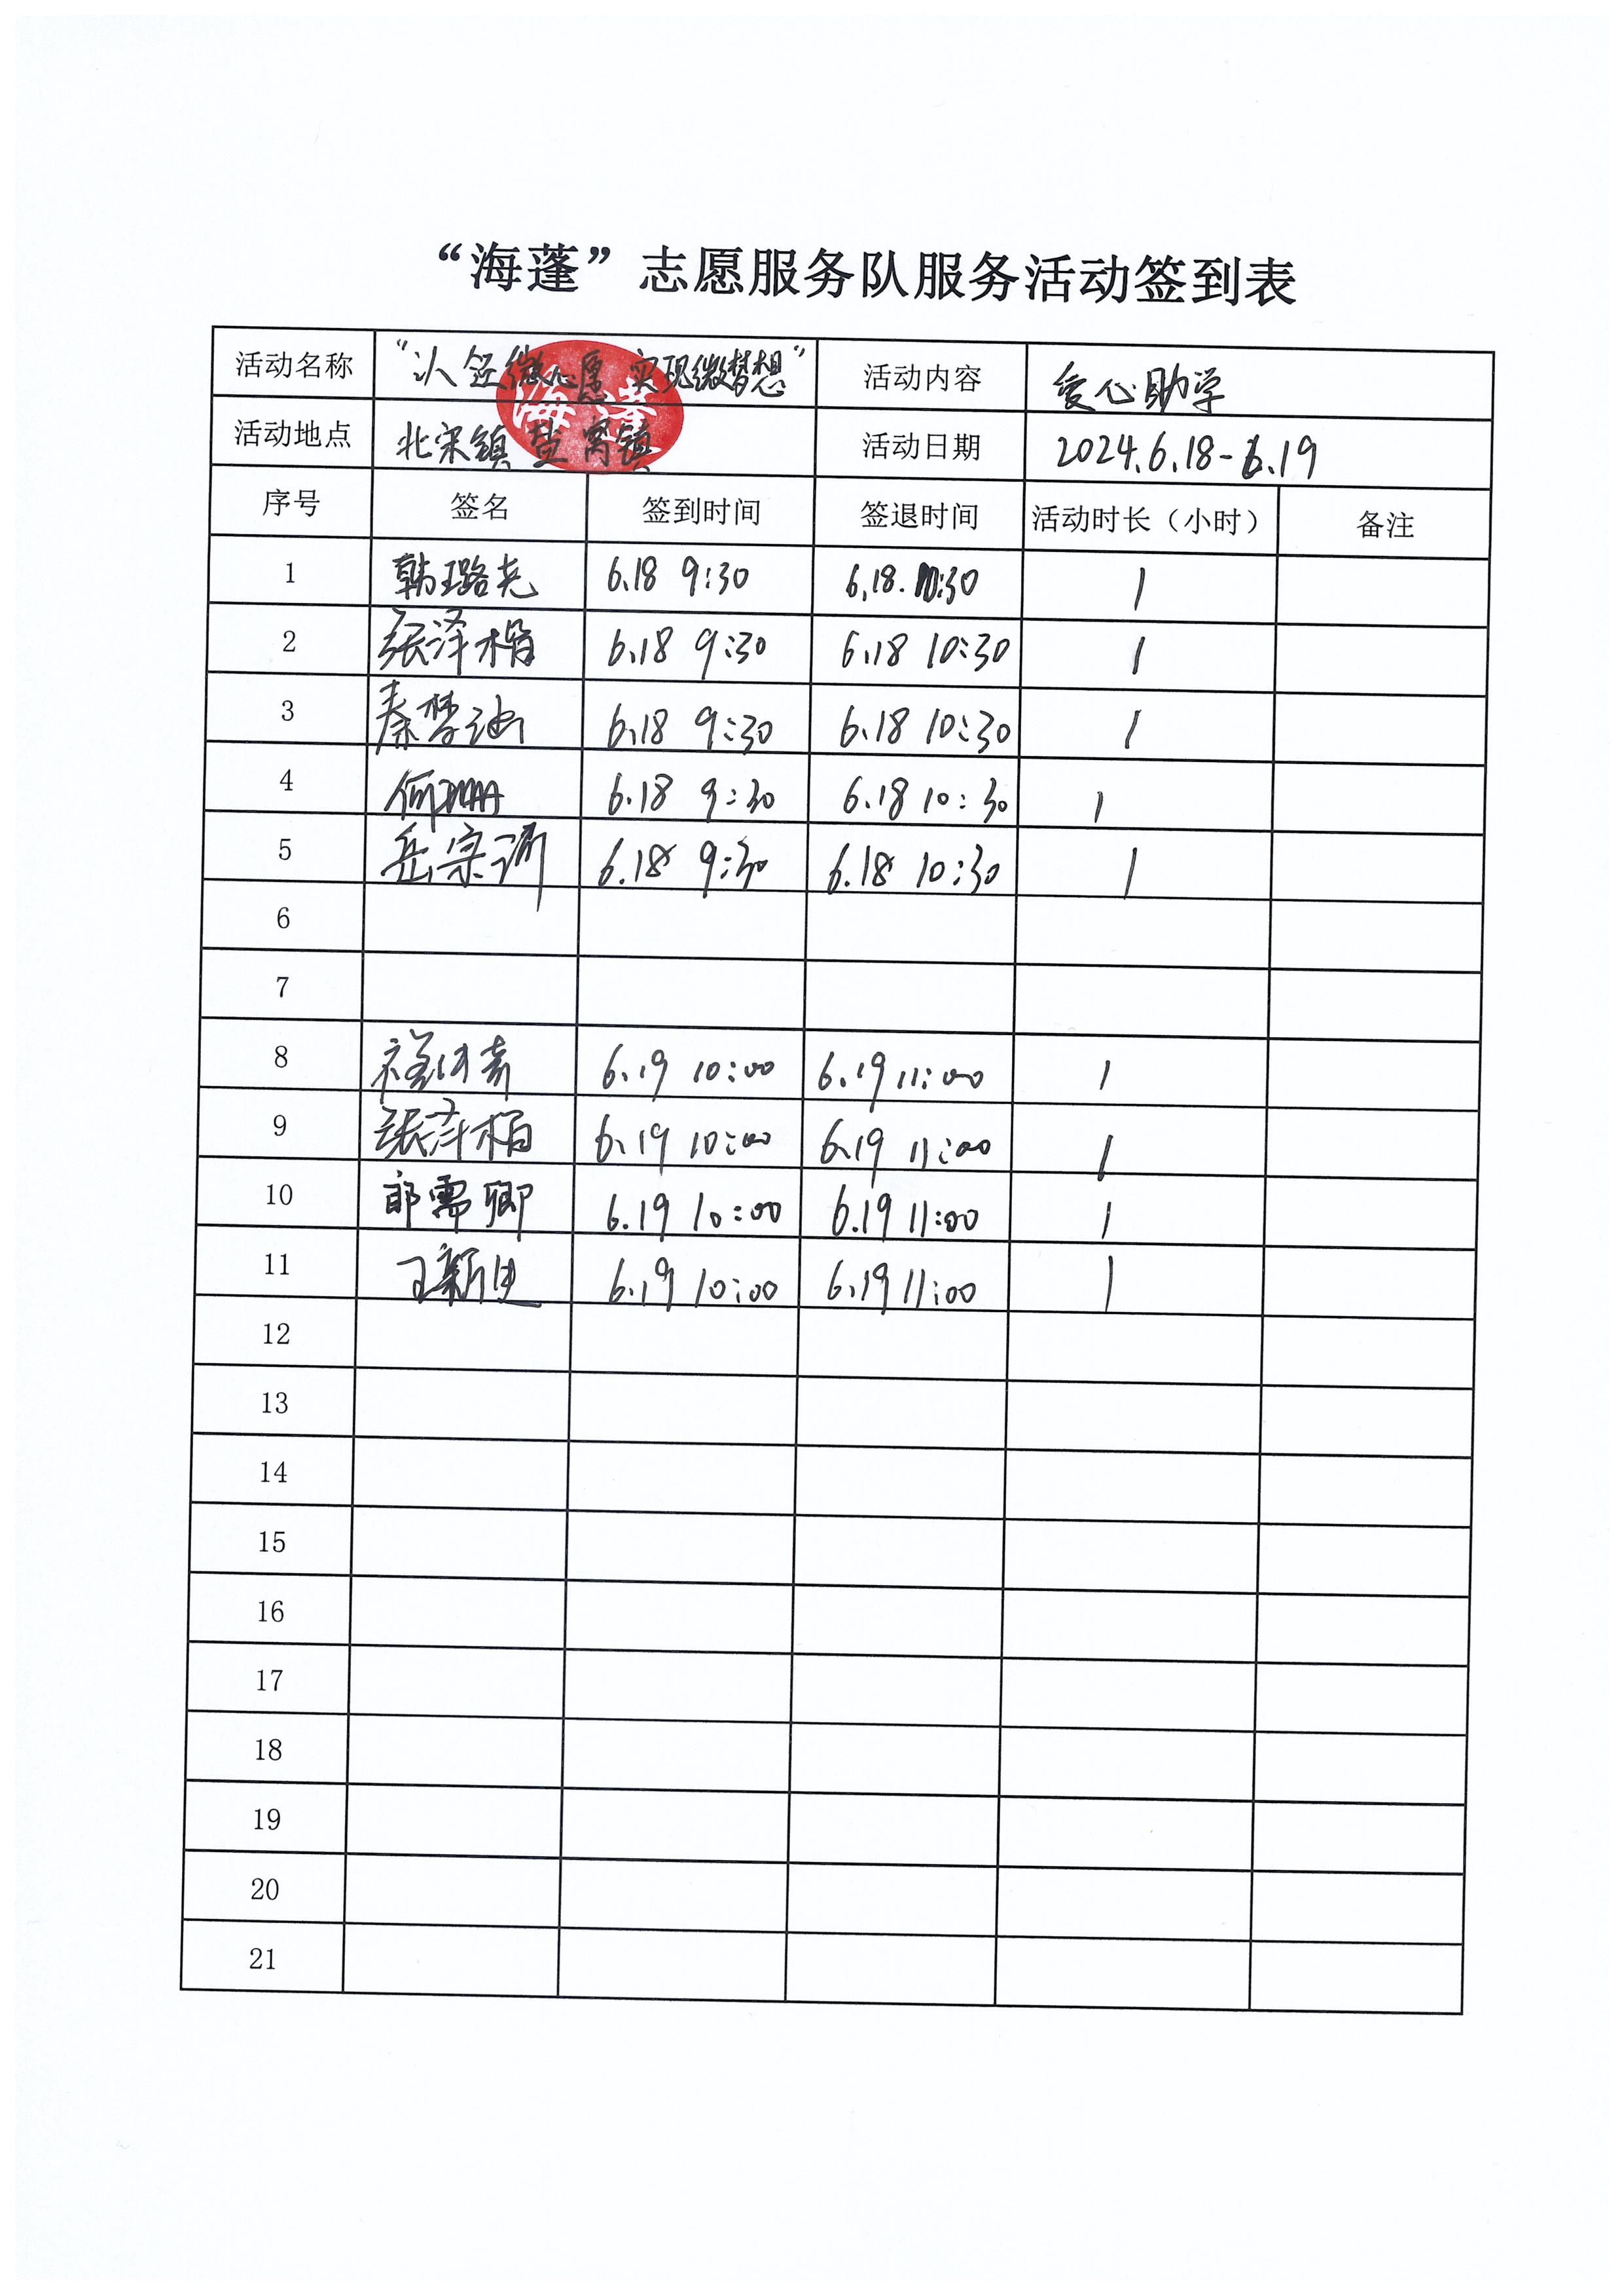 “海蓬”志愿服务队服务活动签到表
活动名称 “认领微心愿 实现微梦想” 活动内容 爱心助学
活动地点 北宋镇 盐窝镇 活动日期 2024.6.18-6.19
海蓬
序号 签名 签到时间 签退时间 活动时长（小时） 备注
1 韩璐尧 6.18 9:30 6.18. 10:30 1
2 张泽楷 6.18 9:30 6.18 10:30 1
3 秦梦 6.18 9:30 6.18 10:30 1
4 何珊珊 6.18 9:30 6.18 10:30 1
5 岳宗 6.18 9:30 6.18 10:30 1
6
7
8 6.19 10:00 6.19 11:00 1
9 张泽楷 6.19 10:00 6.19 11:00 1
10 郎需卿 6.19 10:00 6.19 11:00 1
11 王新 6.19 10:00 6.19 11:00 1
12
13
14
15
16
17
18
19
20
21